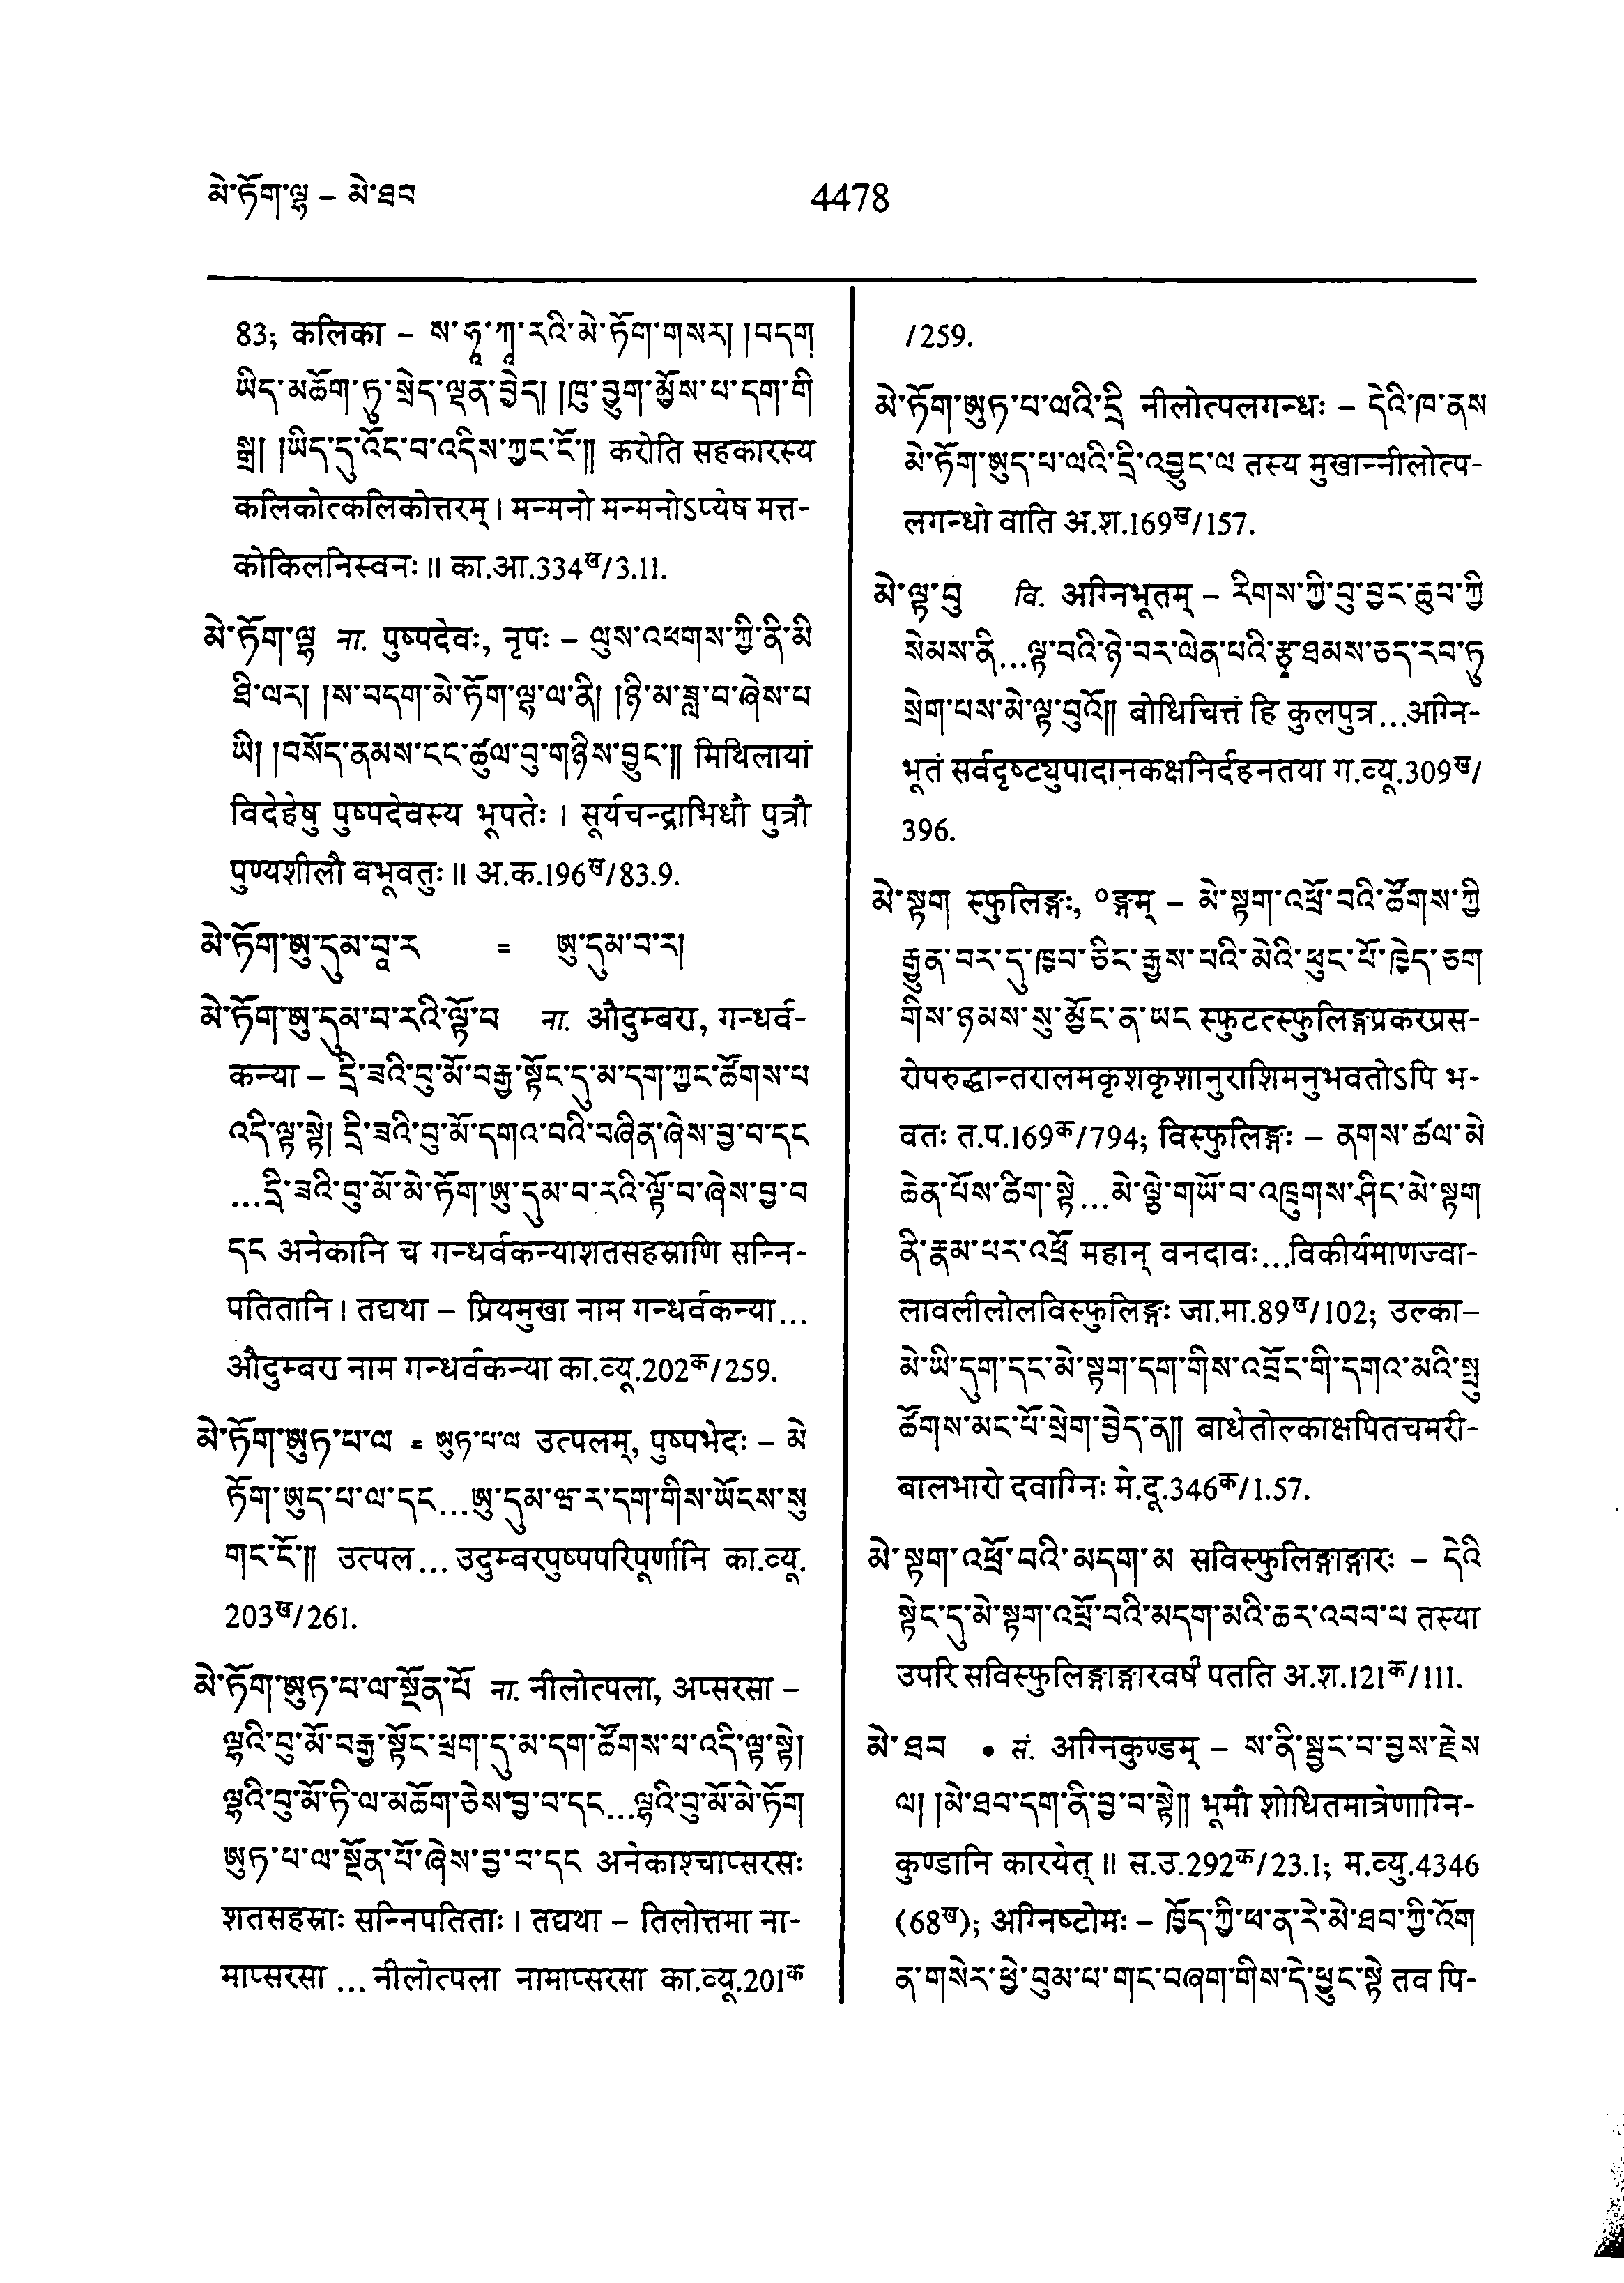 མེ་ཏོག་ལྷ – མེ་ཐབ
4478
83; कलिका – ས་ཧཱ་ཀཱ་རའི་མེ་ཏོག་གསར། །བདག
ཡིད་མཆོག་ཏུ་སྲེད་ལྡན་བྱེད། །ཁུ་བྱུག་མྱོས་པ་དག་གི
སྒྲ། །ཡིད་དུ་འོང་བ་འདིས་ཀྱང་ངོ་༎ करोति सहकारस्य
कलिकोत्कलिकोत्तरम् । मन्मनो मन्मनोऽप्येष मत्त-
कोकिलनिस्वनः ॥ का.आ.334ख/3.11.
མེ་ཏོག་ལྷ ना. पुष्पदेवः, नृपः – ལུས་འཕགས་ཀྱི་ནི་མི
ཐི་ལར། །ས་བདག་མེ་ཏོག་ལྷ་ལ་ནི། །ཉི་མ་ཟླ་བ་ཞེས་པ
ཡི། །བསོད་ནམས་ངང་ཚུལ་བུ་གཉིས་བྱུང་༎ मिथिलायां
विदेहेषु पुष्पदेवस्य भूपतेः । सूर्यचन्द्राभिधौ पुत्रौ
पुण्यशीलौ बभूवतुः ॥ अ.क.196ख/83.9.
མེ་ཏོག་ཨུ་དུམ་བཱ་ར = ཨུ་དུམ་བ་ར།
མེ་ཏོག་ཨུ་དུམ་བ་རའི་ལྟོ་བ ना. औदुम्बरा, गन्धर्व-
कन्या – དྲི་ཟའི་བུ་མོ་བརྒྱ་སྟོང་དུ་མ་དག་ཀྱང་ཚོགས་པ
འདི་ལྟ་སྟེ། དྲི་ཟའི་བུ་མོ་དགའ་བའི་བཞིན་ཞེས་བྱ་བ་དང
...དྲི་ཟའི་བུ་མོ་མེ་ཏོག་ཨུ་དུམ་བ་རའི་ལྟོ་བ་ཞེས་བྱ་བ
དང अनेकानि च गन्धर्वकन्याशतसहस्राणि सन्नि-
पतितानि । तद्यथा – प्रियमुखा नाम गन्धर्वकन्या...
औदुम्बरा नाम गन्धर्वकन्या का.व्यू.202क/259.
མེ་ཏོག་ཨུཏ་པ་ལ = ཨུཏ་པ་ལ उत्पलम्, पुष्पभेदः – མེ
ཏོག་ཨུད་པ་ལ་དང...ཨུ་དུམ་ཝ་ར་དག་གིས་ཡོངས་སུ
གང་ངོ་༎ उत्पल... उदुम्बरपुष्पपरिपूर्णानि का.व्यू.
203ख/261.
མེ་ཏོག་ཨུཏ་པ་ལ་སྔོན་པོ ना. नीलोत्पला, अप्सरसा –
ལྷའི་བུ་མོ་བརྒྱ་སྟོང་ཕྲག་དུ་མ་དག་ཚོགས་པ་འདི་ལྟ་སྟེ།
ལྷའི་བུ་མོ་ཏི་ལ་མཆོག་ཅེས་བྱ་བ་དང...ལྷའི་བུ་མོ་མེ་ཏོག
ཨུཏ་པ་ལ་སྔོན་པོ་ཞེས་བྱ་བ་དང अनेकाश्चाप्सरसः
शतसहस्राः सन्निपतिताः । तद्यथा – तिलोत्तमा ना-
माप्सरसा ... नीलोत्पला नामाप्सरसा का.व्यू.201क
/259.
མེ་ཏོག་ཨུཏ་པ་ལའི་དྲི नीलोत्पलगन्धः – དེའི་ཁ་ནས
མེ་ཏོག་ཨུད་པ་ལའི་དྲི་འབྱུང་ལ तस्य मुखान्नीलोत्प-
लगन्धो वाति अ.श.169ख/157.
མེ་ལྟ་བུ वि. अग्निभूतम् – རིགས་ཀྱི་བུ་བྱང་ཆུབ་ཀྱི
སེམས་ནི...ལྟ་བའི་ཉེ་བར་ལེན་པའི་རྩྭ་ཐམས་ཅད་རབ་ཏུ
སྲེག་པས་མེ་ལྟ་བུའོ༎ बोधिचित्तं हि कुलपुत्र...अग्नि-
भूतं सर्वदृष्ट्युपादानकक्षनिर्दहनतया ग.व्यू.309ख/
396.
མེ་སྟག स्फुलिङ्गः, ०ङ्गम् – མེ་སྟག་འཕྲོ་བའི་ཚོགས་ཀྱི
རྒྱུན་བར་དུ་ཁྱབ་ཅིང་རྒྱས་པའི་མེའི་ཕུང་པོ་ཁྱེད་ཅག
གིས་ཉམས་སུ་མྱོང་ན་ཡང स्फुटत्स्फुलिङ्गप्रकरप्रस-
रोपरुद्धान्तरालमकृशकृशानुराशिमनुभवतोऽपि भ-
वतः त.प.169क/794; विस्फुलिङ्गः – ནགས་ཚལ་མེ
ཆེན་པོས་ཚིག་སྟེ...མེ་ལྕེ་གཡོ་བ་འཁྲུགས་ཤིང་མེ་སྟག
ནི་རྣམ་པར་འཕྲོ महान् वनदावः...विकीर्यमाणज्वा-
लावलीलोलविस्फुलिङ्गः जा.मा.89ख/102; उल्का–
མེ་ཡི་དུག་དང་མེ་སྟག་དག་གིས་འབྲོང་གི་དགའ་མའི་སྤུ
ཚོགས་མང་པོ་སྲེག་བྱེད་ན༎ बाधेतोल्काक्षपितचमरी-
बालभारो दवाग्निः मे.दू.346क/1.57.
མེ་སྟག་འཕྲོ་བའི་མདག་མ सविस्फुलिङ्गाङ्गारः – དེའི
སྟེང་དུ་མེ་སྟག་འཕྲོ་བའི་མདག་མའི་ཆར་འབབ་པ तस्या
उपरि सविस्फुलिङ्गाङ्गारवर्षं पतति अ.श.121क/111.
མེ་ཐབ • सं. अग्निकुण्डम् – ས་ནི་སྦྱང་བ་བྱས་རྗེས
ལ། །མེ་ཐབ་དག་ནི་བྱ་བ་སྟེ༎ भूमौ शोधितमात्रेणाग्नि-
कुण्डानि कारयेत् ॥ स.उ.292क/23.1; म.व्यु.4346
(68ख); अग्निष्टोमः – ཁྱོད་ཀྱི་ཕ་ན་རེ་མེ་ཐབ་ཀྱི་འོག
ན་གསེར་ཕྱེ་བུམ་པ་གང་བཞག་གིས་དེ་ཕྱུང་སྟེ तव पि-